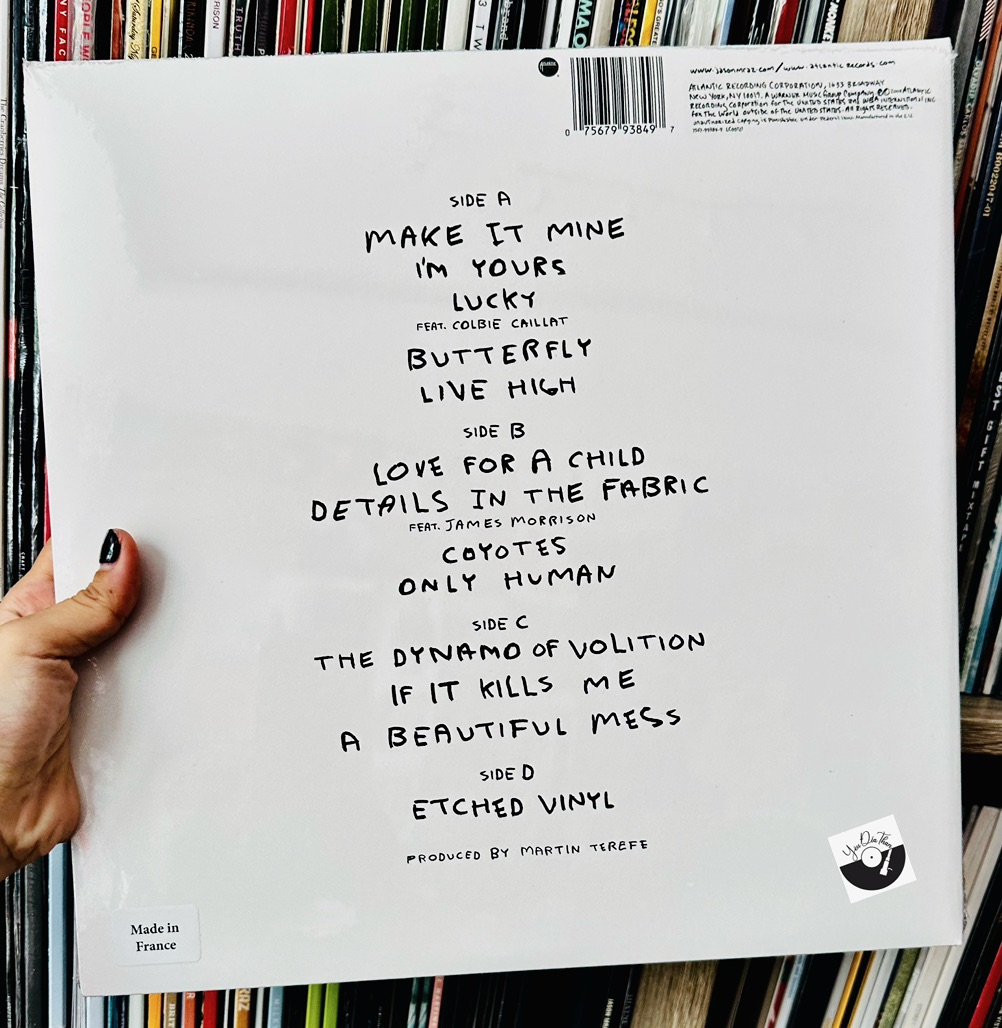 NY FAC
PEOPLE
RISON
TRUTH
www.jasonmraz.com / www.atlanticrecords.com
ATLANTIC RECORDING CORPORATION, 1633 BROADWAY
NEW YORK, NY 10019. A WARNER MUSIC Group Company. ATLANTIC
RECORDING Corporation for the UNITED STATES and WEA INTERNATIONAL INC
for the World outside of the UNITED STATES. All Rights RESERVED.
unauthorized copying is Punishable under Federal Laws. Manufactured in the E.U.
0 75679 93849 7
SIDE A
MAKE IT MINE
I'M YOURS
LUCKY
FEAT. COLBIE CAILLAT
BUTTERFLY
LIVE HIGH
SIDE B
LOVE FOR A CHILD
DETAILS IN THE FABRIC
FEAT. JAMES MORRISON
COYOTES
ONLY HUMAN
SIDE C
THE DYNAMO OF VOLITION
IF IT KILLS ME
A BEAUTIFUL MESS
SIDE D
ETCHED VINYL
PRODUCED BY MARTIN TEREFE
Made in
France
The Cranberries Dreams: The Collection